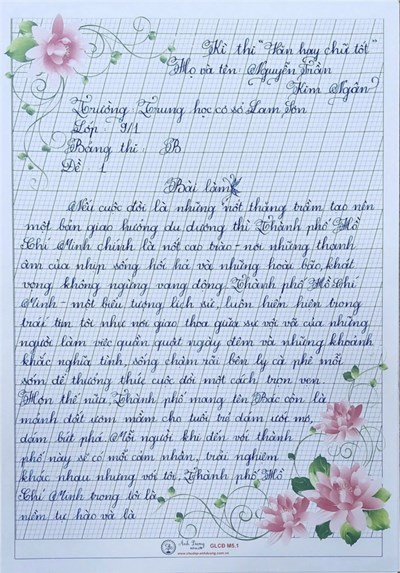 Kì thi "Văn hay chữ tốt"
Họ và tên: Nguyễn Trần
Kim Ngân
Trường: Trung học cơ sở Lam Sơn
Lớp: 9/1
Bảng thi: B
Đề: 1
Bài làm
Nếu cuộc đời là những nốt thăng trầm, tạo nên
một bản giao hưởng du dương thì Thành phố Hồ
Chí Minh chính là nốt cao trào - nơi những thanh
âm của nhịp sống hối hả và những hoài bão, khát
vọng không ngừng vang động. Thành phố Hồ Chí
Minh - một biểu tượng lịch sử, luôn hiện hiên trong
trái tim tôi như nơi giao thoa giữa sự vội vã của những
người làm việc quần quật ngày đêm và những khoảnh
khắc nghĩa tình, sống chậm rãi bên ly cà phê mỗi
sớm để thưởng thức cuộc đời một cách trọn vẹn.
Hơn thế nữa, Thành phố mang tên Bác còn là
mảnh đất ươm mầm cho tuổi trẻ dám ước mơ,
dám bứt phá. Mỗi người khi đến với thành
phố này sẽ có mỗi cảm nhận, trải nghiệm
khác nhau nhưng với tôi, Thành phố Hồ
Chí Minh trong tôi là
niềm tự hào và là
Ánh Dương
GLCĐ M5.1